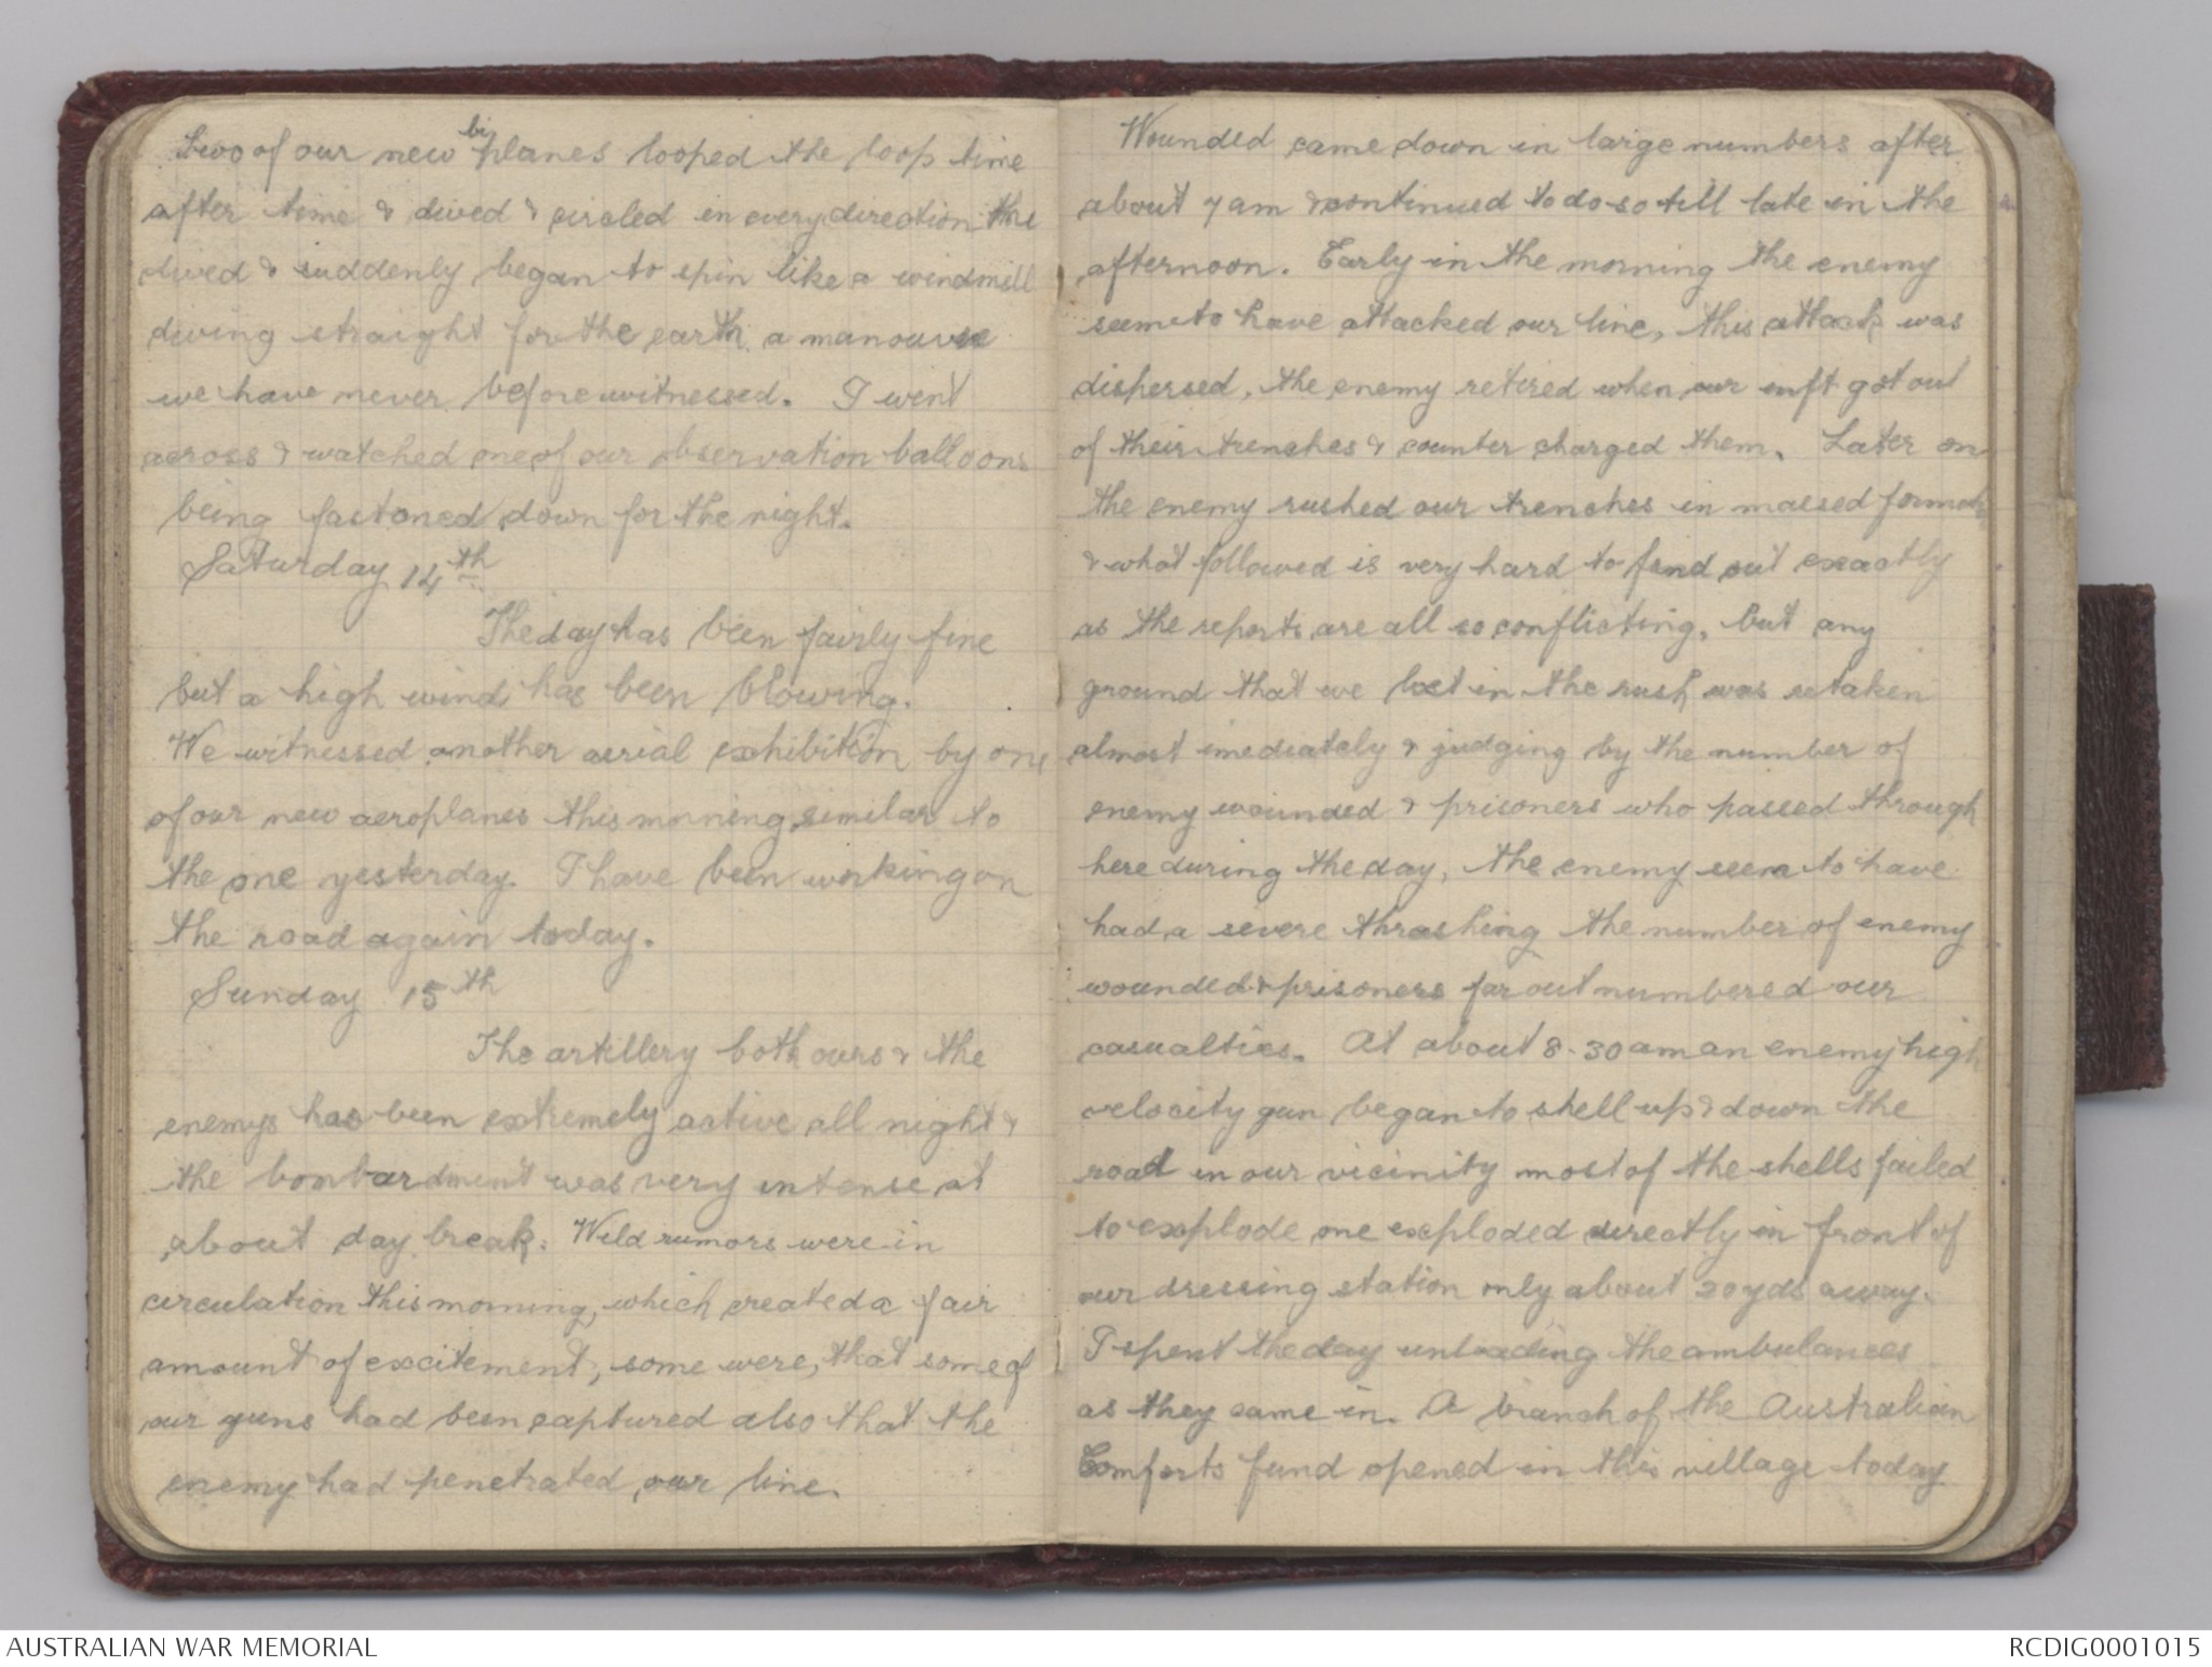 Two of our new biplanes looped the loop time
after time & dived & circled in every direction the
dived & suddenly began to spin like a windmill
diving straight for the earth, a manouvre
we have never before witnessed. I went
across & watched one of our observation balloons
being fastoned down for the night.
Saturday 14th
The day has been fairly fine
but a high wind has been blowing.
We witnessed another aerial exhibition by one
of our new aeroplanes this morning, similar to
the one yesterday. I have been working on
the road again today.
Sunday 15th
The artillery both ours & the
enemys has been extremely active all night &
the bonbardment was very intense at
about day break. Wild rumors were in
circulation this morning, which created a fair
amount of excitement, some were, that some of
our guns had been captured also that the
enemy had penetrated our line.
Wounded came down in large numbers after
about 7 am & continued to do so till late in the
afternoon. Early in the morning the enemy
seem to have attacked our line, this attack was
dispersed, the enemy retired when our inft got out
of their trenches & counter charged them. Later on
the enemy rushed our trenches in massed format
& what followed is very hard to find out exactly
as the reports are all so conflicting, but any
ground that we lost in the rush was retaken
almost imediately & judging by the number of
enemy wounded & prisoners who passed through
here during the day, the enemy seem to have
had a severe thrashing the number of enemy
wounded & prisoners far out numbered our
casualties. At about 8-30 am an enemy high
velocity gun began to shell up & down the
road in our vicinity most of the shells failed
to explode one exploded directly in front of
our dressing station only about 20 yds away.
I spent the day unloading the ambulances
as they came in. A branch of the Australian
Comforts fund opened in this village today
AUSTRALIAN WAR MEMORIAL
RCDIG0001015